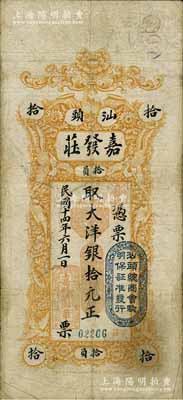 上海陽明拍賣
拾 拾
汕頭
嘉發莊
拾員
憑票
取大洋銀拾元正
民國十四年六月一日
票
汕頭總商會驗
明保証准發行
02206
拾 拾員 拾
上海陽明拍賣